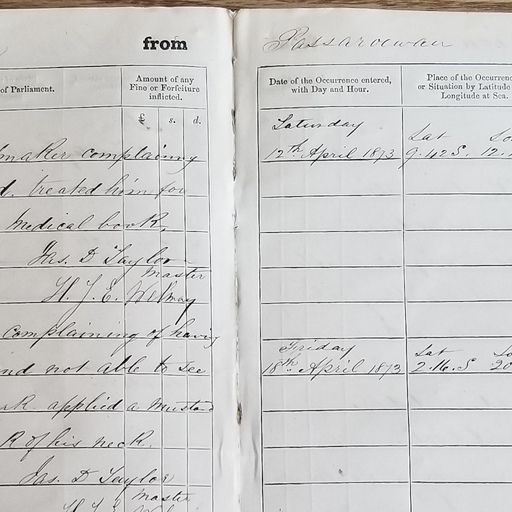 from
of Parliament.
Amount of any
Fine or Forfeiture
inflicted.
£ s. d.
maker complaining
d, treated him for
medical book.
Jas. D Taylor
master
H. J. E.
complaining of having
nd not able to see
applied a mustard
k of his neck.
Jas. D Taylor
master
Passaroewan
Date of the Occurrence entered,
with Day and Hour.
Place of the Occurrence
or Situation by Latitude
Longitude at Sea.
Saturday
12th April 1873
Lat
9.42 S. 12.
Friday
18th April 1873
Lat
2.16. S 20